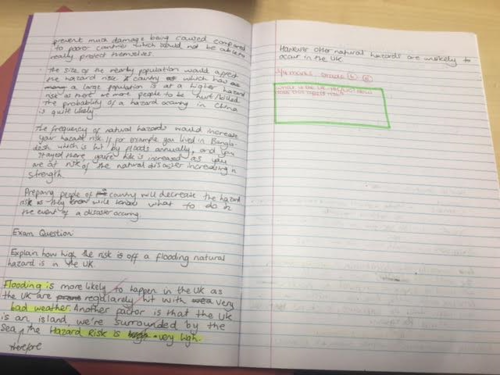 prevent much damage being caused compared
to poorer countries which would not be able to
really protect themselves
• the size of the nearby population would affect
the hazard risk. A country which have
a large population is at a higher hazard
risk as there are more people to be hurt/killed.
the probability of a hazard occuring in China
is quite likely
The frequency of natural hazards would increase
your hazard risk if for example you lived in Bangla-
desh which is hit by floods annually, and you
stayed there your risk is increased as you
are at risk of the natural disaster increasing in
strength
Preparing people of country will decrease the hazard
risk as they will know what to do in
the event of a disaster occuring
Exam Question
Explain how high the risk is off a flooding natural
hazard is in the UK
Flooding is more likely to happen in the UK as
the UK are regularly hit with very
bad weather. Another factor is that the UK
is an island, we're surrounded by the
Sea, the Hazard Risk is very high.
However other natural hazards are unlikely to
occur in the UK